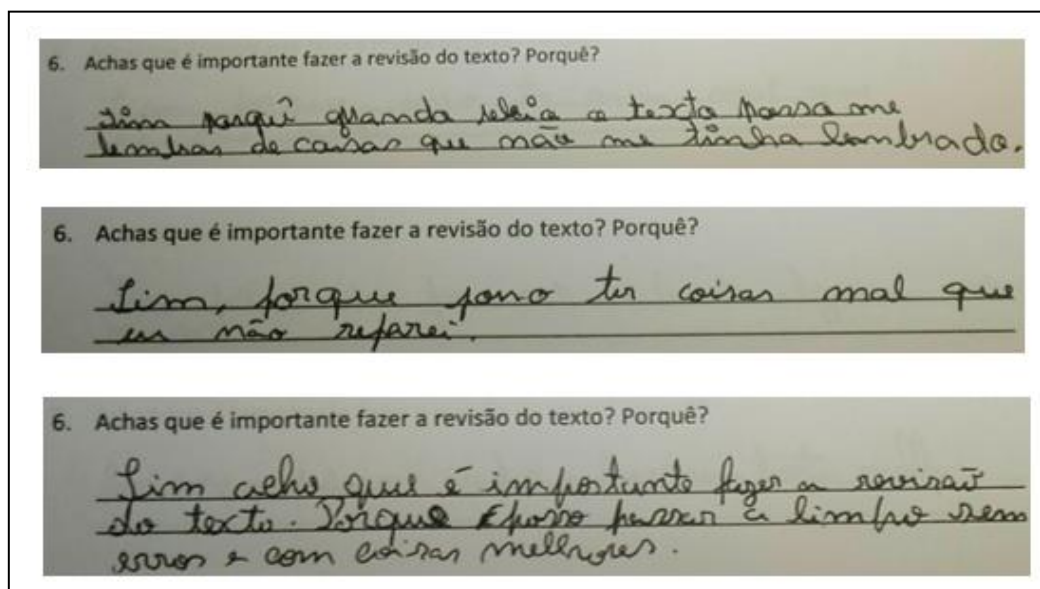 6. Achas que é importante fazer a revisão do texto? Porquê?
Sim porquê quando releio o texto posso me
lembrar de coisas que não me tinha lembrado.
6. Achas que é importante fazer a revisão do texto? Porquê?
Sim, porque posso ter coisas mal que
eu não reparei.
6. Achas que é importante fazer a revisão do texto? Porquê?
Sim acho que é importante fazer a revisão
do texto. Porque posso passar a limpo sem
erros e com coisas melhores.